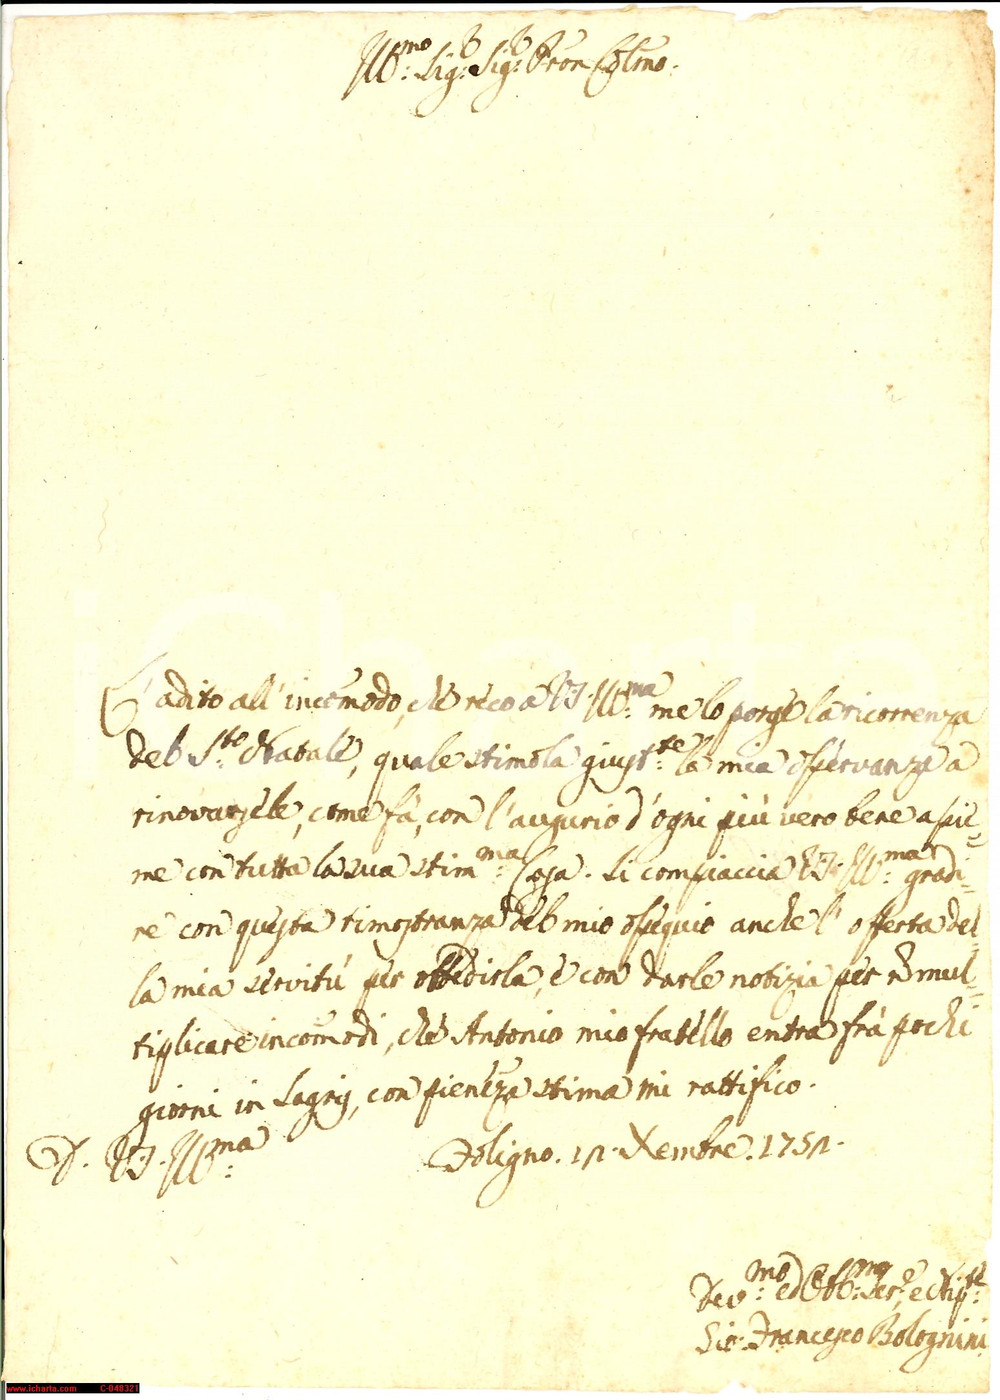 Ill:mo Sig:r Sig:r Pron Colmo:
L'adito all'incomodo, che reco a VS. Ill:ma me lo porge la ricorrenza
del S:to Natale, quale stimola giust:te la mia osservanza a
rinovarsele, come fà, con l'augurio d'ogni più vero bene assie=
me con tutta la sua stim:ma Casa. Si compiaccia VS. Ill:ma gradi=
re con questa rimostranza del mio ossequio anche l'offerta del=
la mia servitù per obbedirla, e con darle notizia per n mul=
tiplicare incomodi, che Antonio mio fratello entra frà pochi
giorni in, con pienezza stima mi rattifico.
D. VS. Ill:ma
Foligno. Xembre.
Dev:mo ed Obb:mo Ser:e e Nip:te
Gio: Francesco Bolognini
www.icharta.com C-040321